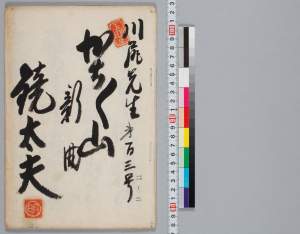 川尻先生 第百三号
かちく山
新曲
鏡太夫